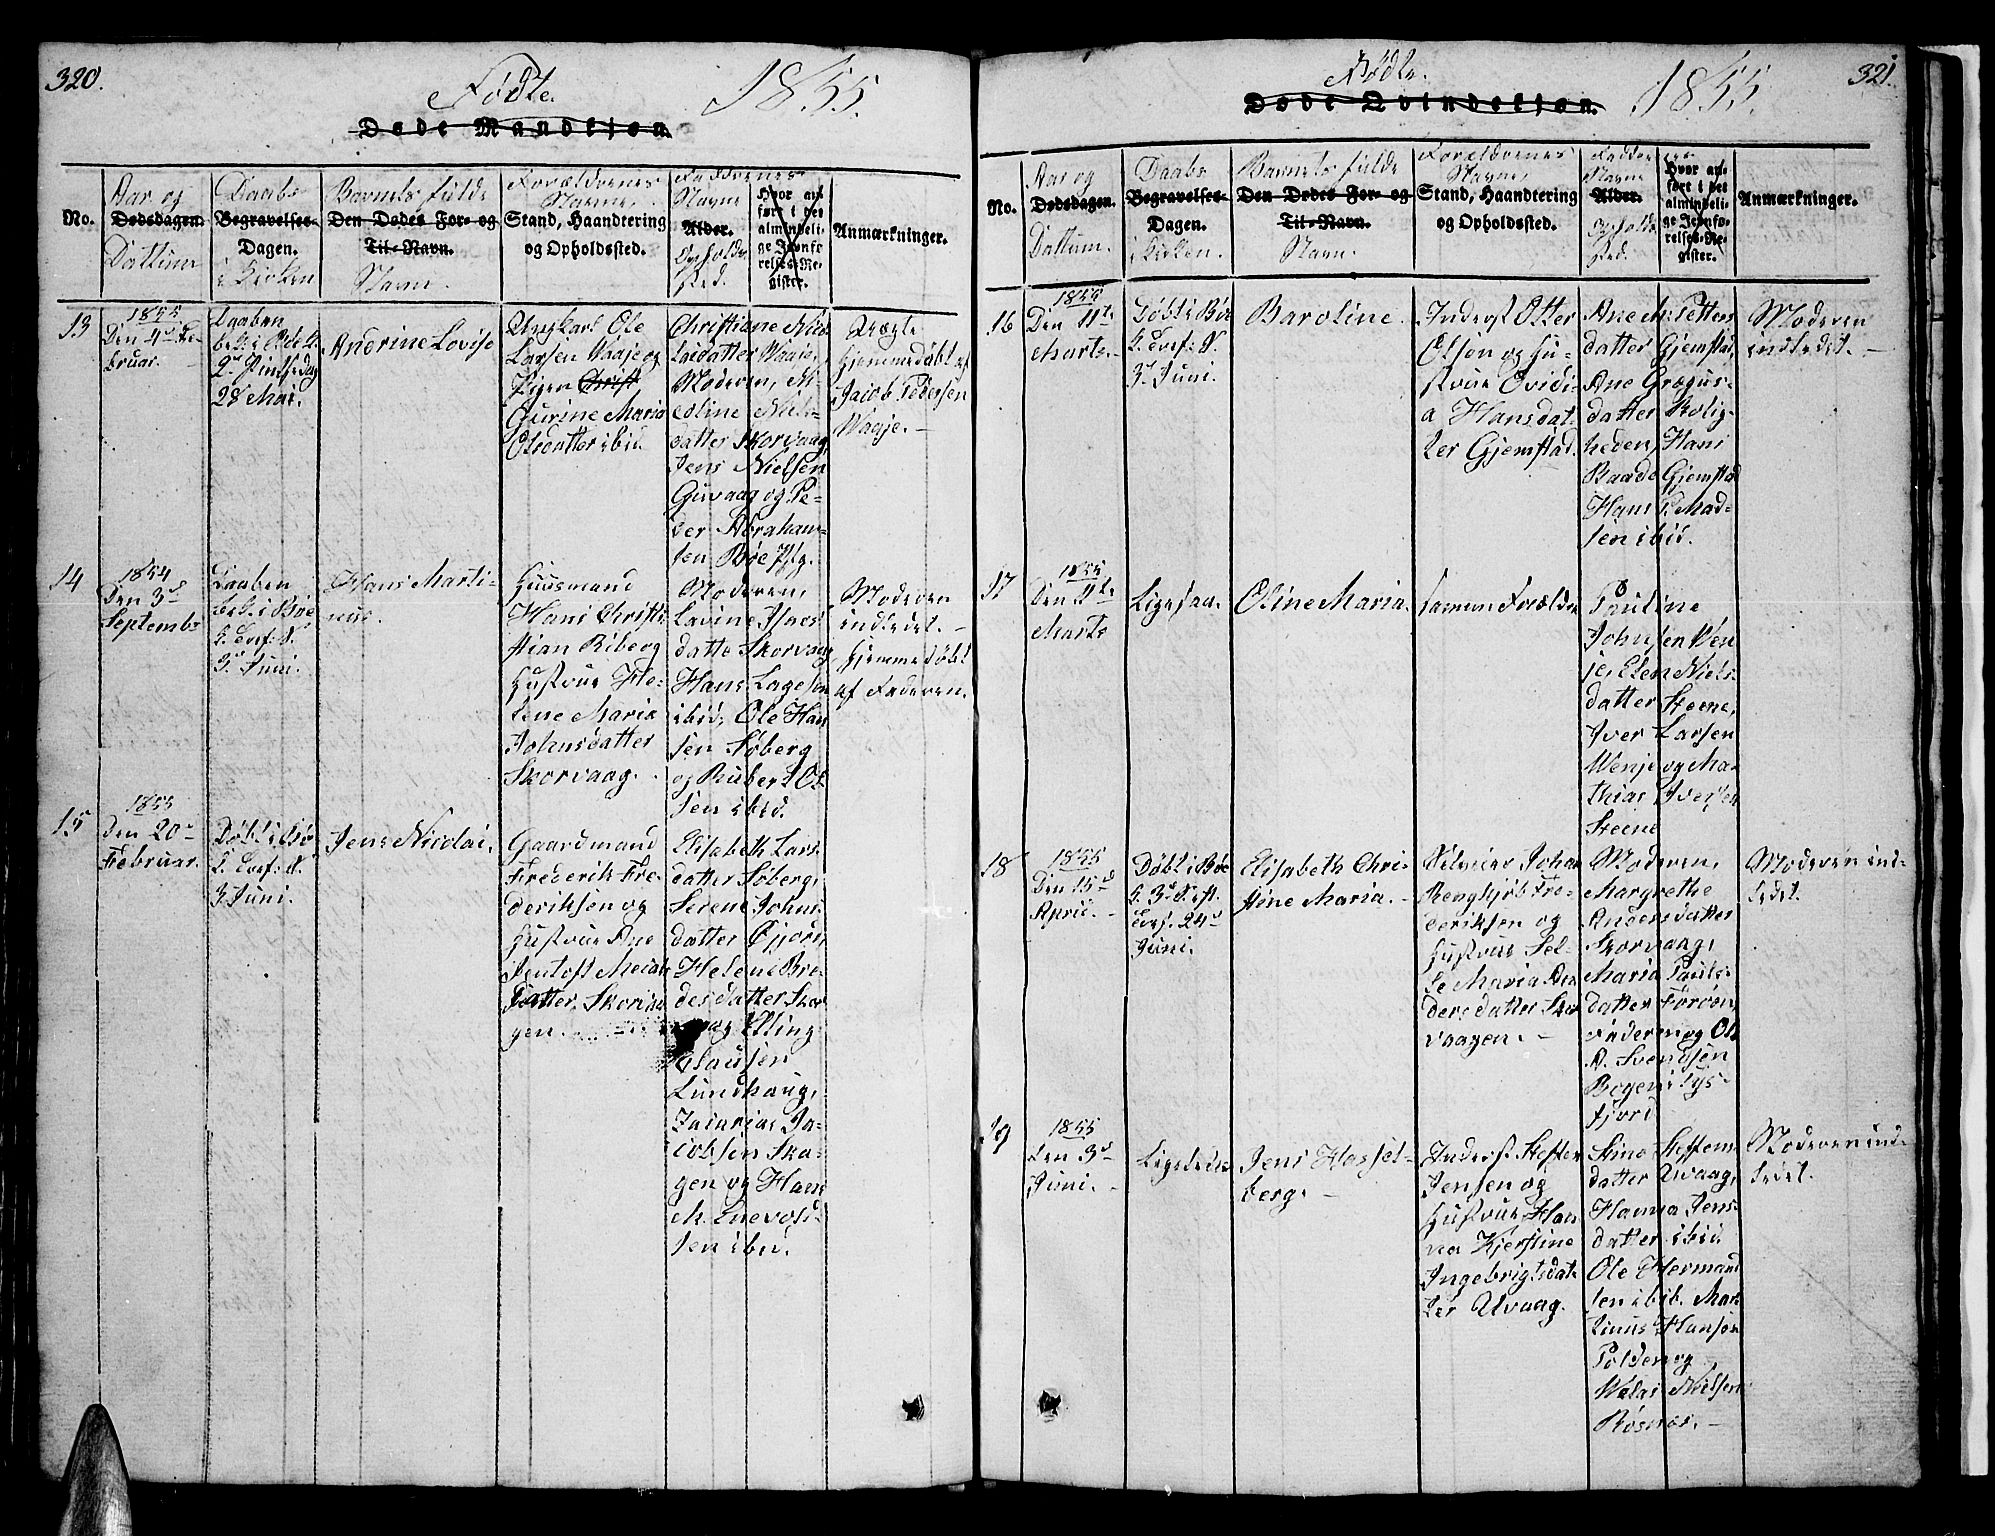 320.
Fødte.
1855.
Døde Mandkjøn.
No.
Aar og
Dødsdagen.
Dattum
Daabs
Begravelses-
Dagen.
i Kirken
Barnets fulde
Den Dødes For- og
Til-Navn.
Navn.
Forældrenes
Navne,
Stand, Haandtering
og Opholdssted.
Faddernes
Navne
Alder.
Opholds
sted.
Hvor an-
ført i det
almindeli-
ge Jevnfø-
relses-Re-
gister.
Anmærkninger.
13
1855
Den 4de Fe-
bruar.
Daaben
2den Pintsedag
28 Mai.
Andrine Lovise
Ungkarl Ole
Larsen Vaaje og
Pigen Christ
Gurine Maria
Olsdatter ibid.
Christiane Nico-
laidatter Vaaje,
Moderen, M-
edline Niels-
datter Skorvaag,
Jens Nielsen
Guvaag og Pe-
ter Abraham-
sen Bøe Pg.
Uægte
Hjemmedøbt af
Jacob Pedersen
Vaaje.
14
1854
Den 3d
Septembr
Daaben
bek. i Bøe
S. Tref: S.
3d Juni.
Hans Marti-
nus.
Huusmand
Hans Christ-
tian Riberg
Hustrue He-
lene Maria
Johnsdatter
Skorvaag.
Moderen,
Lavine Isacs-
datte Skorvaag
Hans Lagesen
ibid, Ole Han
sen Søberg
og Rubert Ol-
sen ibid.
Moderen
indledet.
Hjemmedøbt
af Faderen.
15
1855
Den 20de
Februar.
Døbt i Bøe
S. Tref: S.
3 Juni.
Jens Nicolai.
Gaardmand
Frederik Fre-
deriksen og
Hustrue Ane
Jentoft
datter Skorvaa
gen.
Elisabeth Lars-
datter Søberg,
Serene Johns-
datter
Helene Bre-
desdatter Skor
vaag Elling
Clausen
Lundhaug,
Zacarias Ja-
cobsen Ska-
gen og Hans
M. Enevold-
sen ibid.
321.
Fødte.
1855.
Døde Qvindekjøn.
No.
Aar og
Dødsdagen.
Dattum.
Daabs
Begravelses-
Dagen.
i Kirken.
Barnets fulde
Den Dødes For- og
Til-Navn.
Navn.
Forældrenes
Navne,
Stand, Haandtering
og Opholdssted.
Faddernes
Navne
Alder.
Opholds
sted.
Hvor an-
ført i det
almindeli-
ge Jevnfø-
relses-Re-
gister.
Anmærkninger.
16
1855
Den 11te
Marts.
Døbt i Bøe
S. Tref: S.
3d Juni.
Baroline.
Inderst Otter
Olsen og Hu-
strue Ovidi-
a Hansdat-
ter Gjemstad.
Ane M. Petters
datter Gjemstad,
Ane Grægus-
datter Rolig-
heden, Hans
Baade Gjemstad
Hans P. Mad-
sen ibid.
Moderen
indledet.
17
1855
Den 11te
Marts
Ligesaa.
Oline Maria.
samme Forældre
Pauline
Johnsen Wen-
je, Elen Niels-
datter Steene,
Iver Larsen
Wenje og Ma-
thias Iversen
Steene
18
1855
Den 15d
April.
Døbt i Bøe
S. 3d S. eft.
Tref. 24d
Juni.
Elisabeth Chri-
stine Maria.
Selveier Johan
Bengtjøb Fre-
deriksen og
Hustrue Sel-
le Maria An
dersdatter Skor
vaagen.
Moderen,
Margrethe
Andersdatter
Skorvaag,
Maria Pauls-
datter Førøen,
Faderen og Ole
A. Svendsen
Bogen i Øgs-
fjord
Moderen ind-
ledet.
19
1855
Den 3d
Juni.
Ligeledes
Jens Hassel-
berg.
Inderst Steffen
Jensen og
Hustrue Han
na Kjerstine
Ingebrigtsdat-
ter Uvaag.
Stine Steffens
datter Uvaag,
Hanna Jens-
datter ibid.
Ole Hermand
sen ibid. Mar-
tinus Hansen
Polden og
Nielsen
Røsnes.
Moderen ind-
ledet.